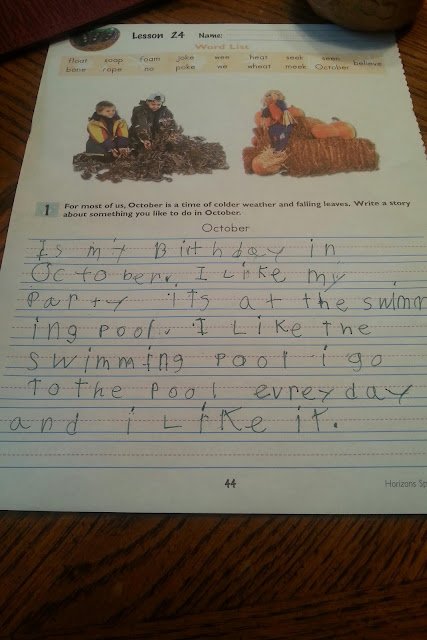 Lesson 24 Name:
Word List
float soap foam joke wen heat seek seen believe
bone rope no poke we wheat meek October
1 For most of us, October is a time of colder weather and falling leaves. Write a story
about something you like to do in October.
October
Is my Birthday in
October. I Like my
party its at the swimm
ing pool. I Like the
swimming pool i go
to the pool evreyday
and i LiKe it.
44
Horizons Sp